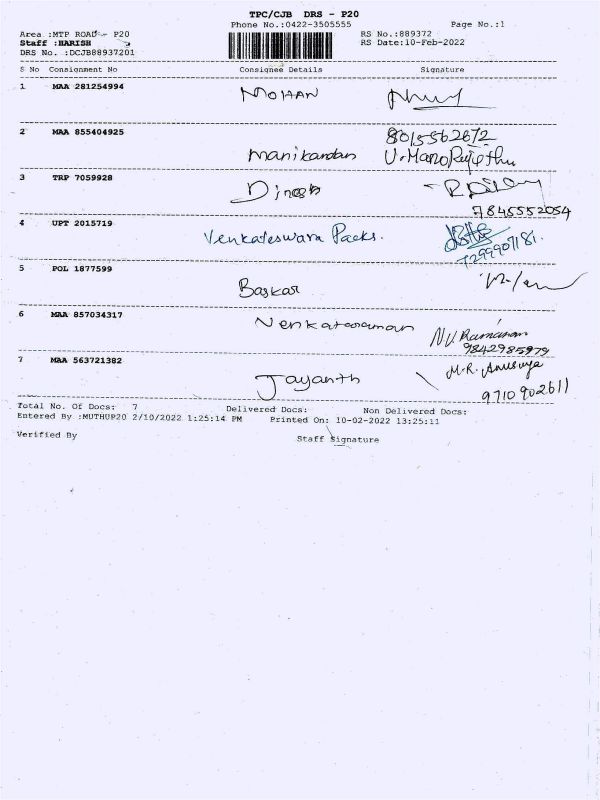 TPC/CJB DRS - P20
Phone No.:0422-3505555 Page No.:1
Area :MTP ROAD - P20 RS No.:889372
Staff :HARISH RS Date:10-Feb-2022
DRS No. :DCJB88937201
S No Consignment No Consignee Details Signature
1 MAA 281254994 MOHAN
2 MAA 855404925 8015562672
Manikandan U.ManoRanjithu
3 TRP 7059928 Dinesh
7845552054
4 UPT 2015719 Venkateswara Packs.
7299907181.
5 POL 1877599
Baskar
6 MAA 857034317 Venkataraman N.V.Ramanan
9842985979
7 MAA 563721382 M.R. Anusuya
Jayanth 9710902611
Total No. Of Docs: 7 Delivered Docs: Non Delivered Docs:
Entered By :MUTHUP20 2/10/2022 1:25:14 PM Printed On: 10-02-2022 13:25:11
Verified By Staff Signature